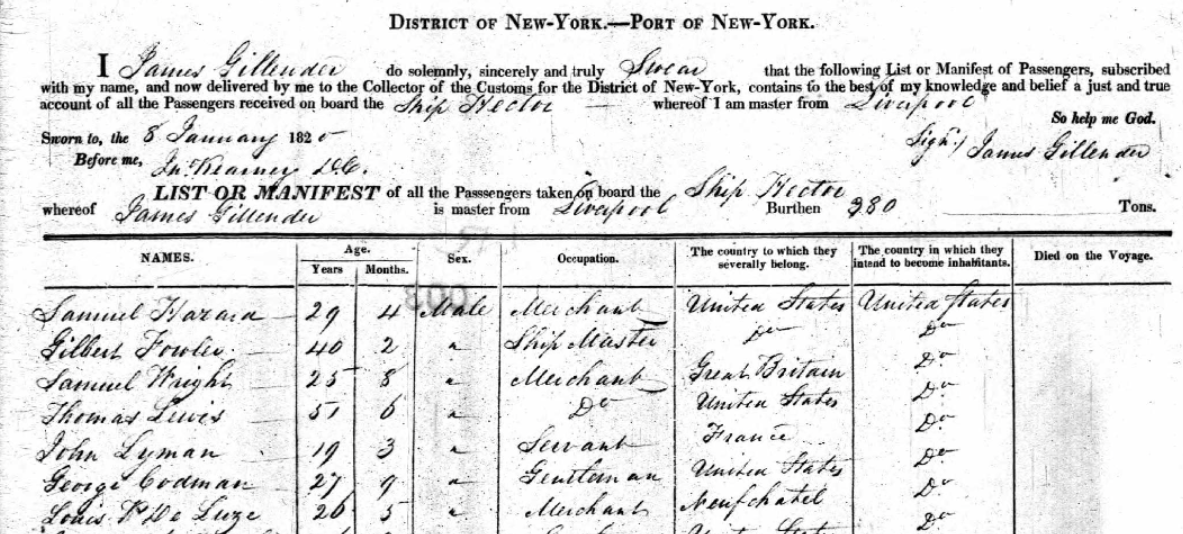 DISTRICT OF NEW-YORK.—PORT OF NEW-YORK.
I James Gillender do solemnly, sincerely and truly Swear that the following List or Manifest of Passengers, subscribed
with my name, and now delivered by me to the Collector of the Customs for the District of New-York, contains to the best of my knowledge and belief a just and true
account of all the Passengers received on board the Ship Hector — whereof I am master from Liverpool
So help me God.
Sworn to, the 8 January 182
Sign'd James Gillender
Before me, Jn. Kearney D.C.
LIST OR MANIFEST of all the Passsengers taken on board the Ship Hector
whereof James Gillender is master from Liverpool Burthen 380 Tons.
NAMES. Age. Years Months. Sex. Occupation. The country to which they severally belong. The country in which they intend to become inhabitants. Died on the Voyage.
Samuel Hazard 29 4 Male Merchant United States United States
Gilbert Fowler 40 2 " Ship Master Do Do
Samuel Wright 25 8 " Merchant Great Britain Do
Thomas Lewis 51 6 " Do United States Do
John Lyman 19 3 " Servant France Do
George Codman 27 9 " Gentleman United States Do
Louis P. De Luze 26 5 " Merchant Neufchatel Do
United States Do